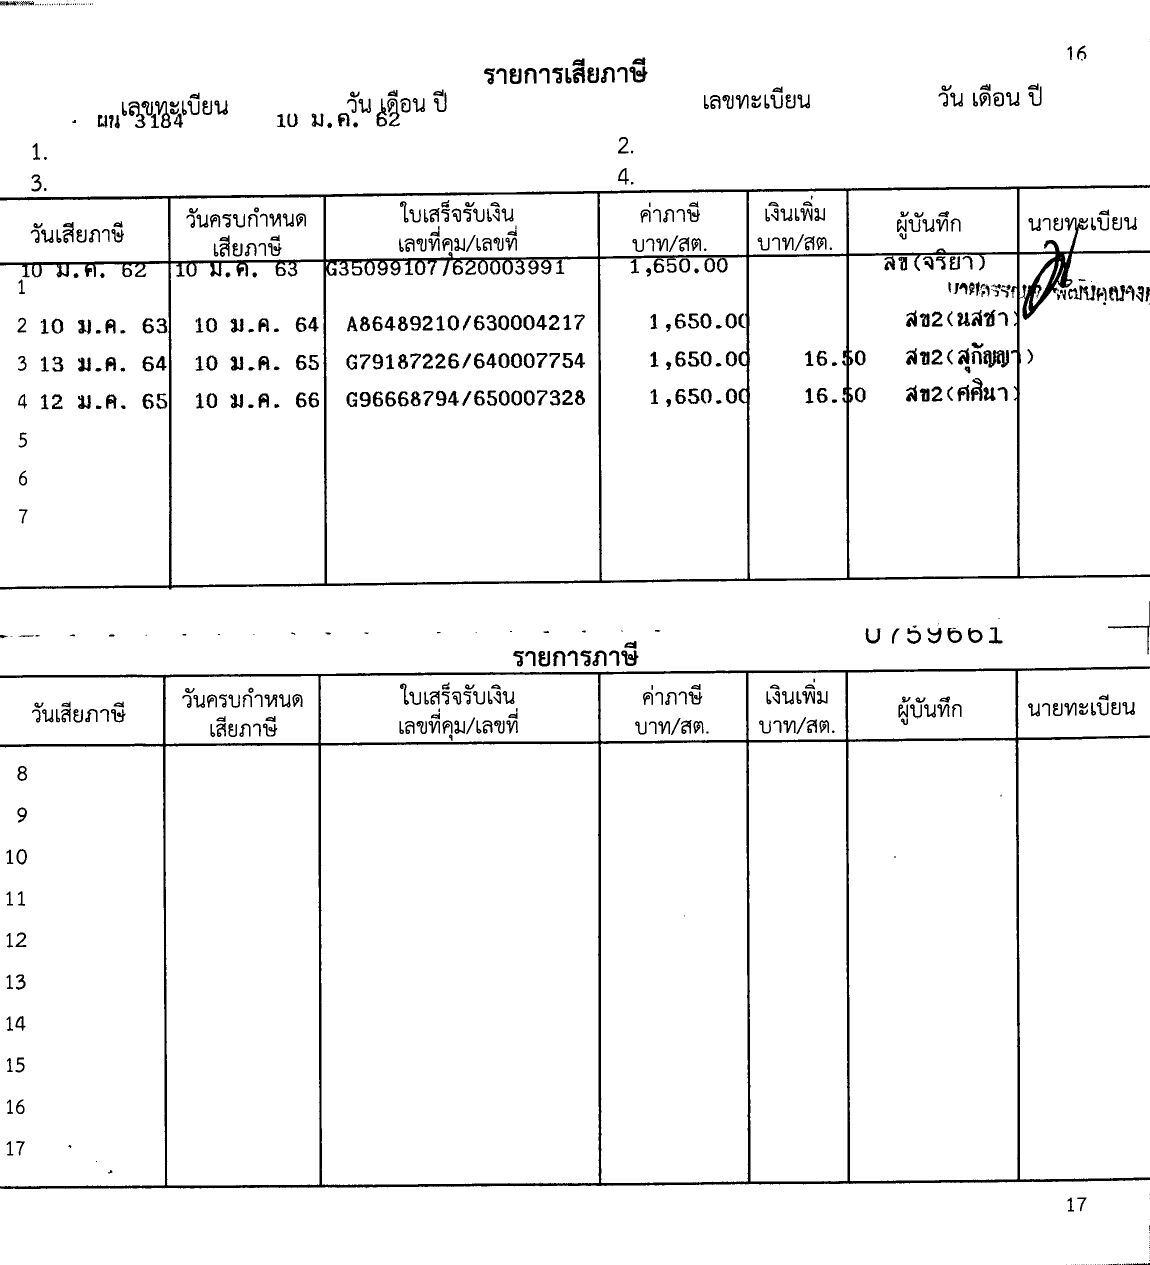 16
รายการเสียภาษี
เลขทะเบียน วัน เดือน ปี เลขทะเบียน วัน เดือน ปี
ผน 3184 10 ม.ค. 62
1. 2.
3. 4.
วันเสียภาษี วันครบกำหนดเสียภาษี ใบเสร็จรับเงิน เลขที่คุม/เลขที่ ค่าภาษี บาท/สต. เงินเพิ่ม บาท/สต. ผู้บันทึก นายทะเบียน
1 10 ม.ค. 62 10 ม.ค. 63 G35099107/620003991 1,650.00 สข(จริยา)
2 10 ม.ค. 63 10 ม.ค. 64 A86489210/630004217 1,650.00 สข2(นสชา)
3 13 ม.ค. 64 10 ม.ค. 65 G79187226/640007754 1,650.00 16.50 สข2(สุกัญญา)
4 12 ม.ค. 65 10 ม.ค. 66 G96668794/650007328 1,650.00 16.50 สข2(ศศินา)
5
6
7
0759661
รายการภาษี
วันเสียภาษี วันครบกำหนดเสียภาษี ใบเสร็จรับเงิน เลขที่คุม/เลขที่ ค่าภาษี บาท/สต. เงินเพิ่ม บาท/สต. ผู้บันทึก นายทะเบียน
8
9
10
11
12
13
14
15
16
17
17